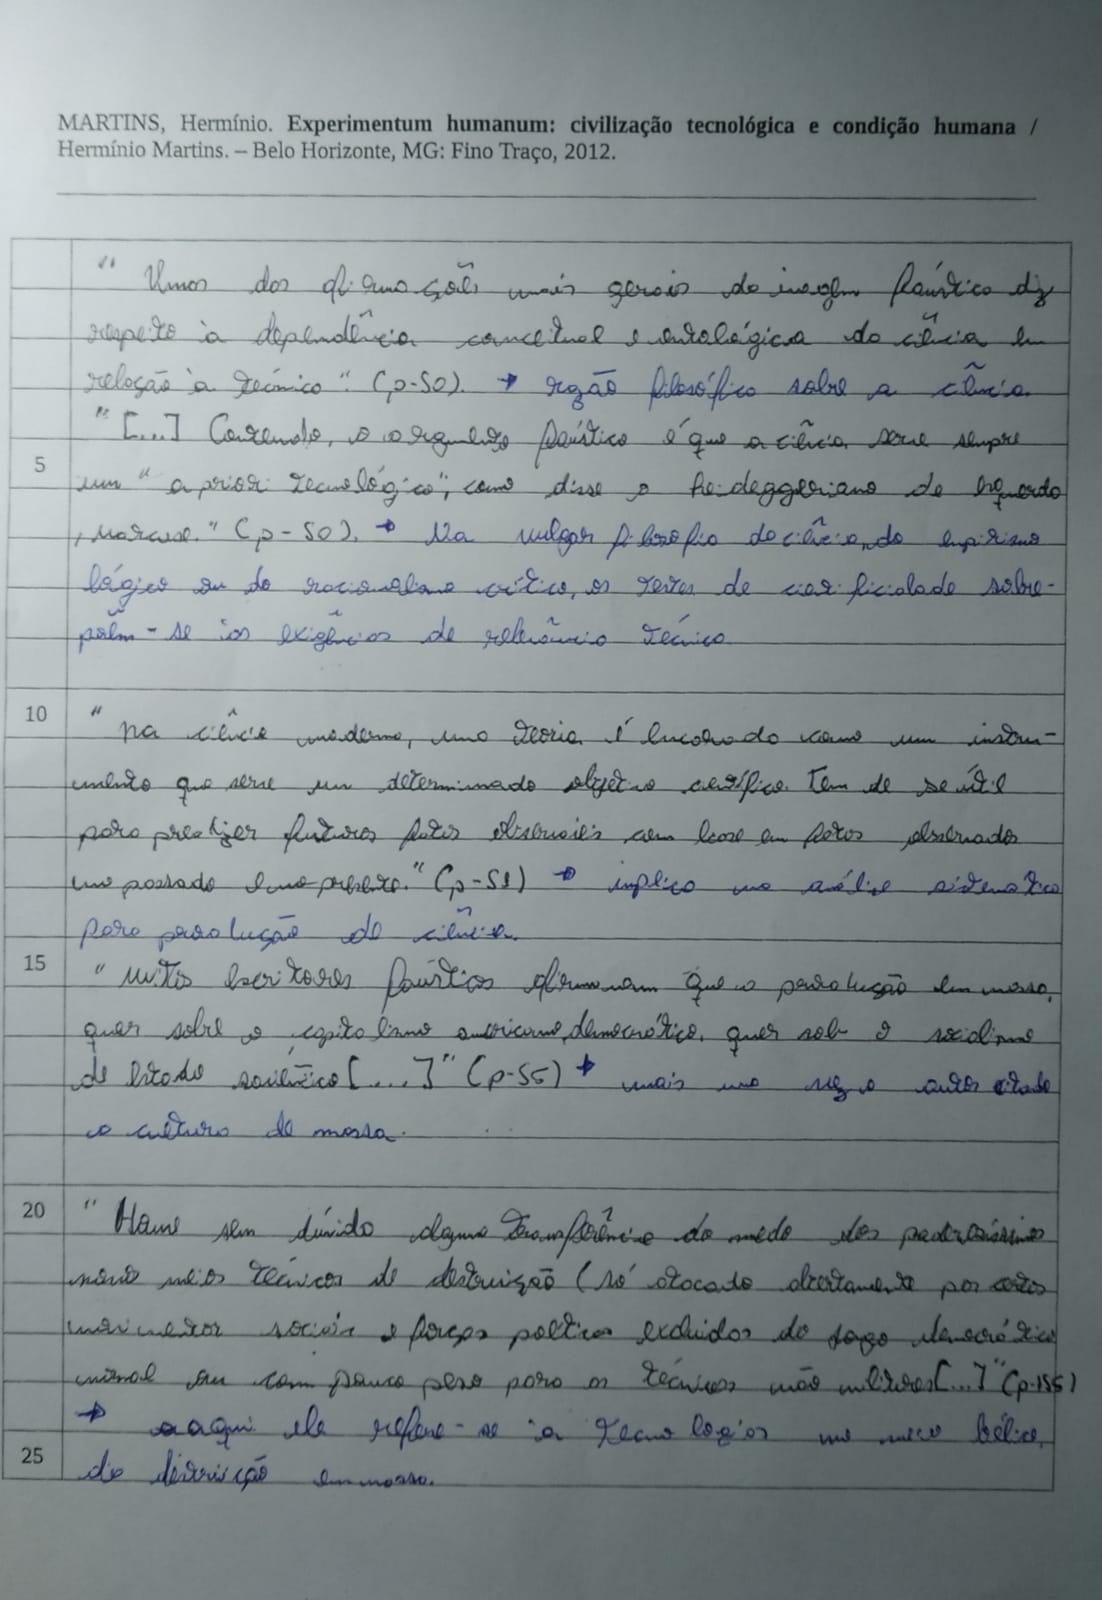 MARTINS, Hermínio. Experimentum humanum: civilização tecnológica e condição humana /
Hermínio Martins. – Belo Horizonte, MG: Fino Traço, 2012.
" Umas das afirmações mais gerais da imagem fáustica diz
respeito à dependência conceitual e ontológica da ciência em
relação à técnica". (p-50). → razão filosófica sobre a ciência.
"[...] Contendo, o argumento fáustico é que a ciência serve sempre
5 um "a priori tecnológico", como disse o heideggeriano de esquerda
, Marcuse." (p-50). → Na vulgar filosofia da ciência, do empirismo
lógico ou do racionalismo crítico, os testes de cientificidade sobre-
põem-se às exigências de relevância técnica
10 " na ciência moderna, uma teoria é encarada como um instru-
mento que serve um determinado objetivo científico. Tem de se útil
para predizer futuros fatos observáveis com base em fatos observados
no passado e no presente." (p-51) → implica na análise sistemática
para produção de ciência.
15 " Muitos escritores fáusticos afirmavam que a produção em massa,
quer sobre o capitalismo americano, democrático, quer sob o socialismo
de Estado soviético [....]" (p-55) → mais uma vez o autor citado
a cultura de massa.
20 " Houve sem dúvida alguma transferência do medo dos poderosíssimos
novos meios técnicos de destruição (só atacado abertamente por certos
movimentos sociais e forças políticas excluídos do jogo democrático
normal ou com pouco peso para os técnicos não militares[...]" (p-155)
→ aaqui ele refere-se à tecnologias no meio bélico,
25 da destruição em massa.